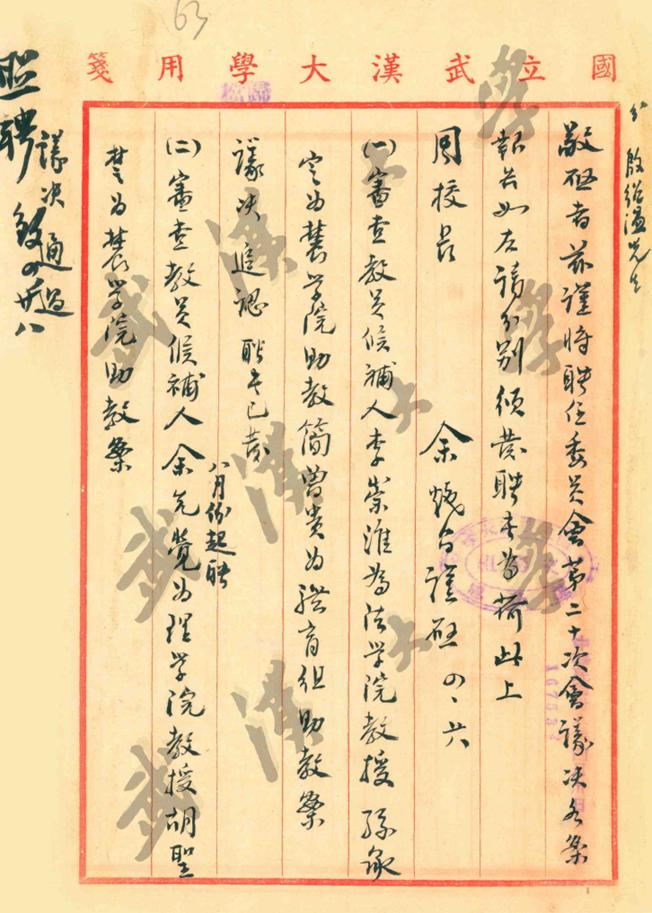 國立武漢大學用箋
63
敬啟者茲謹將聘任委員會第二十次會議決各案
報告如左請分別頒發聘書為荷此上
周校長
余熾昌謹啟 四、六
(一)審查教員候補人李崇淮為法學院教授孫
為農學院助教簡曾貴為體育組助教案
議決追認 聘書已發
(二)審查教員候補人余先覺為理學院教授胡聖
楚為農學院助教案
八月份起聘
議決通過
照聘
四 廿八
武漢大學
武漢大學
武漢大學